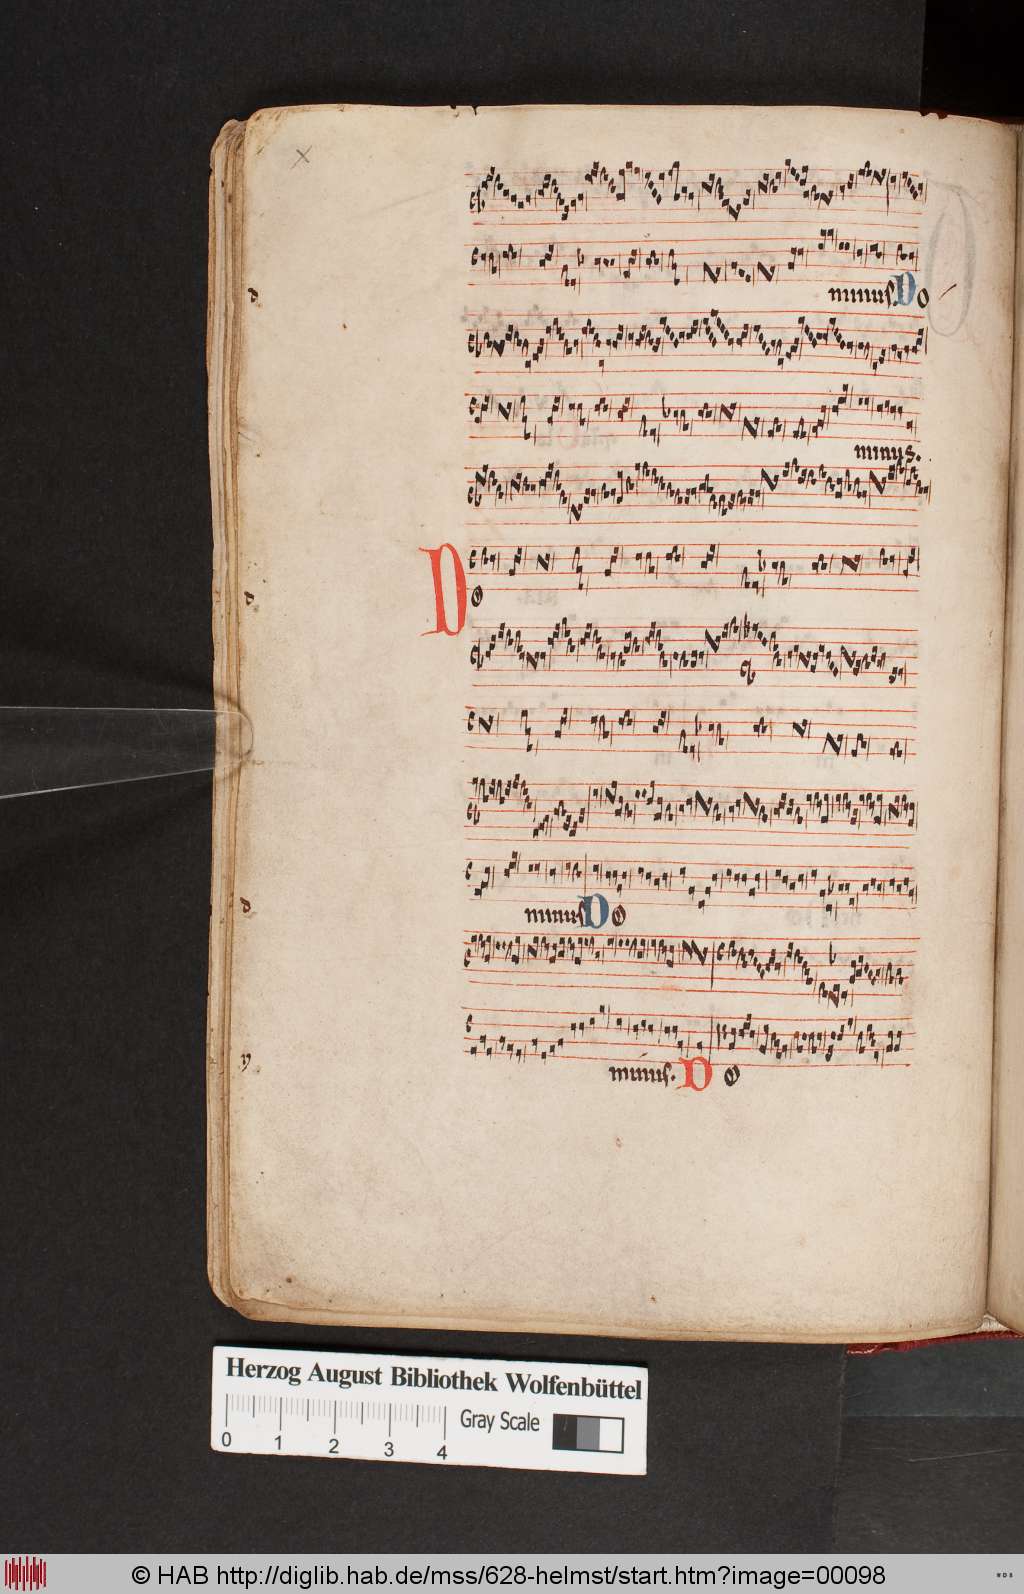 x
minus. Do
minus.
Do
minus Do
minus. Do
d
d
d
y
Herzog August Bibliothek Wolfenbüttel
0 1 2 3 4
Gray Scale
© HAB http://diglib.hab.de/mss/628-helmst/start.htm?image=00098